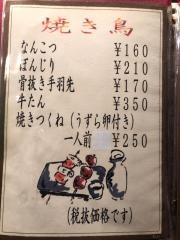 焼き鳥
なんこつ ¥160
ぼんじり ¥210
骨抜き手羽先 ¥170
牛たん ¥350
焼きつくね(うずら卵付き)
一人前 ¥250
(税抜価格です)